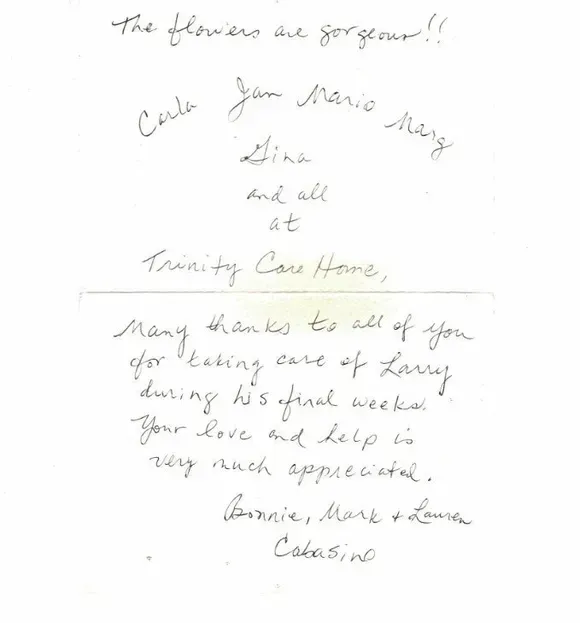 The flowers are gorgeous!!
Carla Jan Mario Marg
Gina
and all
at
Trinity Care Home,
Many thanks to all of you
for taking care of Larry
during his final weeks.
Your love and help is
very much appreciated.
Bonnie, Mark + Lauren
Cabasino